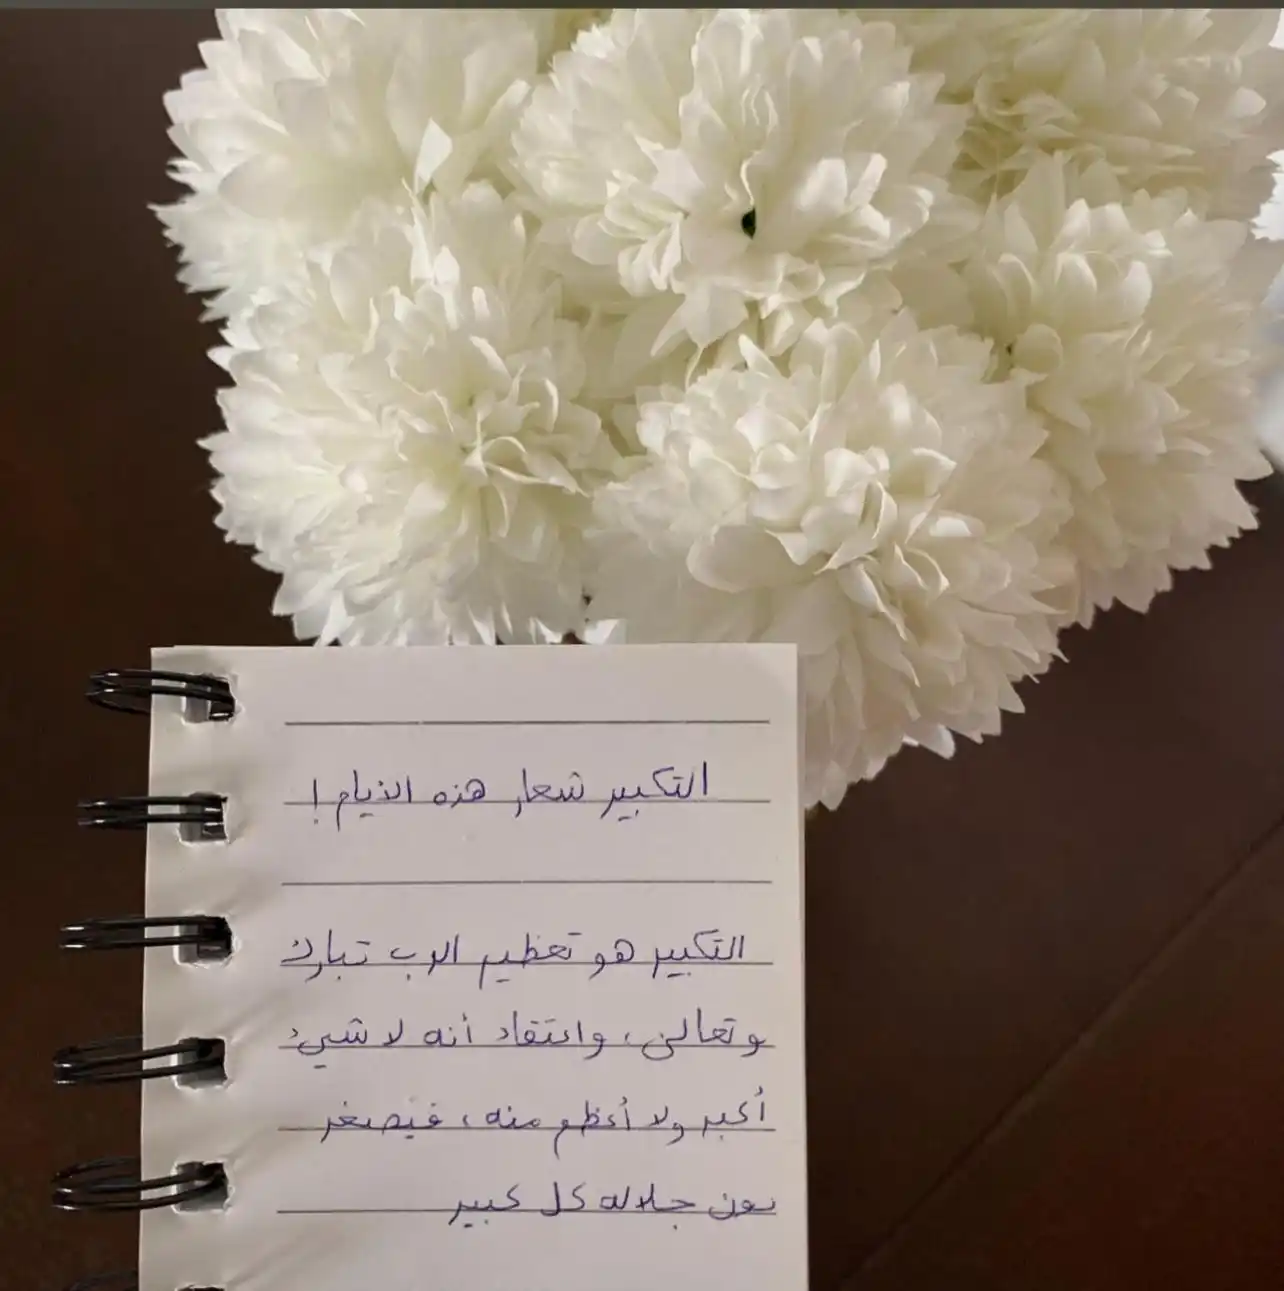 التكبير شعار هذه الأيام!
التكبير هو تعظيم الرب تبارك
وتعالى، واعتقاد أنه لا شيء
أكبر ولا أعظم منه، فيصغر
دون جلاله كل كبير